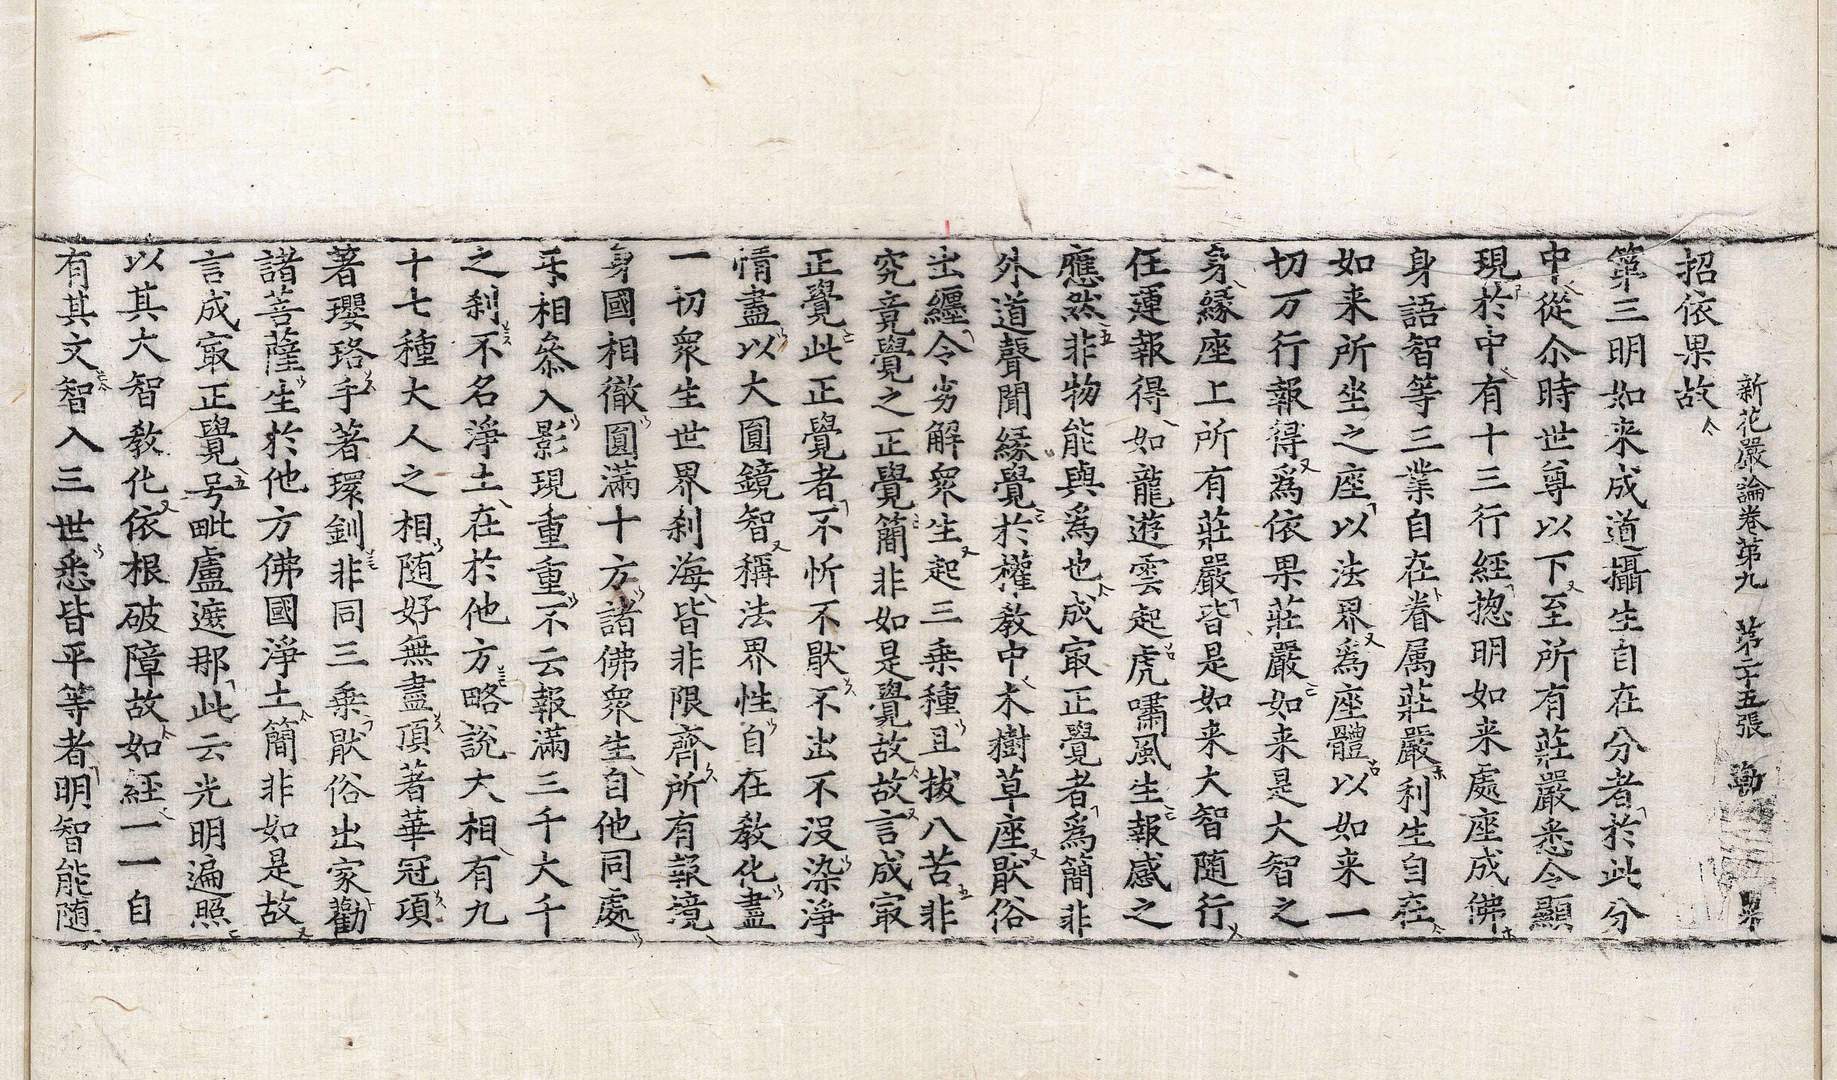 新花嚴論卷第九　第二十五張　勒
招依果故
第三明如来成道攝生自在分者於此分
中從尒時世尊以下至所有莊嚴悉令顯
現於中有十三行經揔明如来處座成佛
身語智等三業自在眷属莊嚴利生自在
如来所坐之座以法界爲座體以如来一
切万行報得爲依果莊嚴如来是大智之
身緣座上所有莊嚴皆是如来大智随行
任運報得如龍遊雲起虎嘯風生報感之
應然非物能與爲也成㝡正覺者爲簡非
外道聲聞緣覺於權教中木樹草座猒俗
出纏令劣解衆生起三乗種且拔八苦非
究竟覺之正覺簡非如是覺故故言成㝡
正覺此正覺者不忻不猒不出不没染淨
情盡以大圓鏡智稱法界性自在教化盡
一切衆生世界刹海皆非限齊所有報境
身國相徹圓滿十方諸佛衆生自他同處
身相叅入影現重重不云報滿三千大千
之刹不名淨土在於他方略說大相有九
十七種大人之相随好無盡頂著華冠項
著瓔珞手著環釧非同三乗猒俗出家勸
諸菩薩生於他方佛國淨土簡非如是故
言成㝡正覺号毗盧遮那此云光明遍照
以其大智教化依根破障故如經一一自
有其文智入三世悉皆平等者明智能随